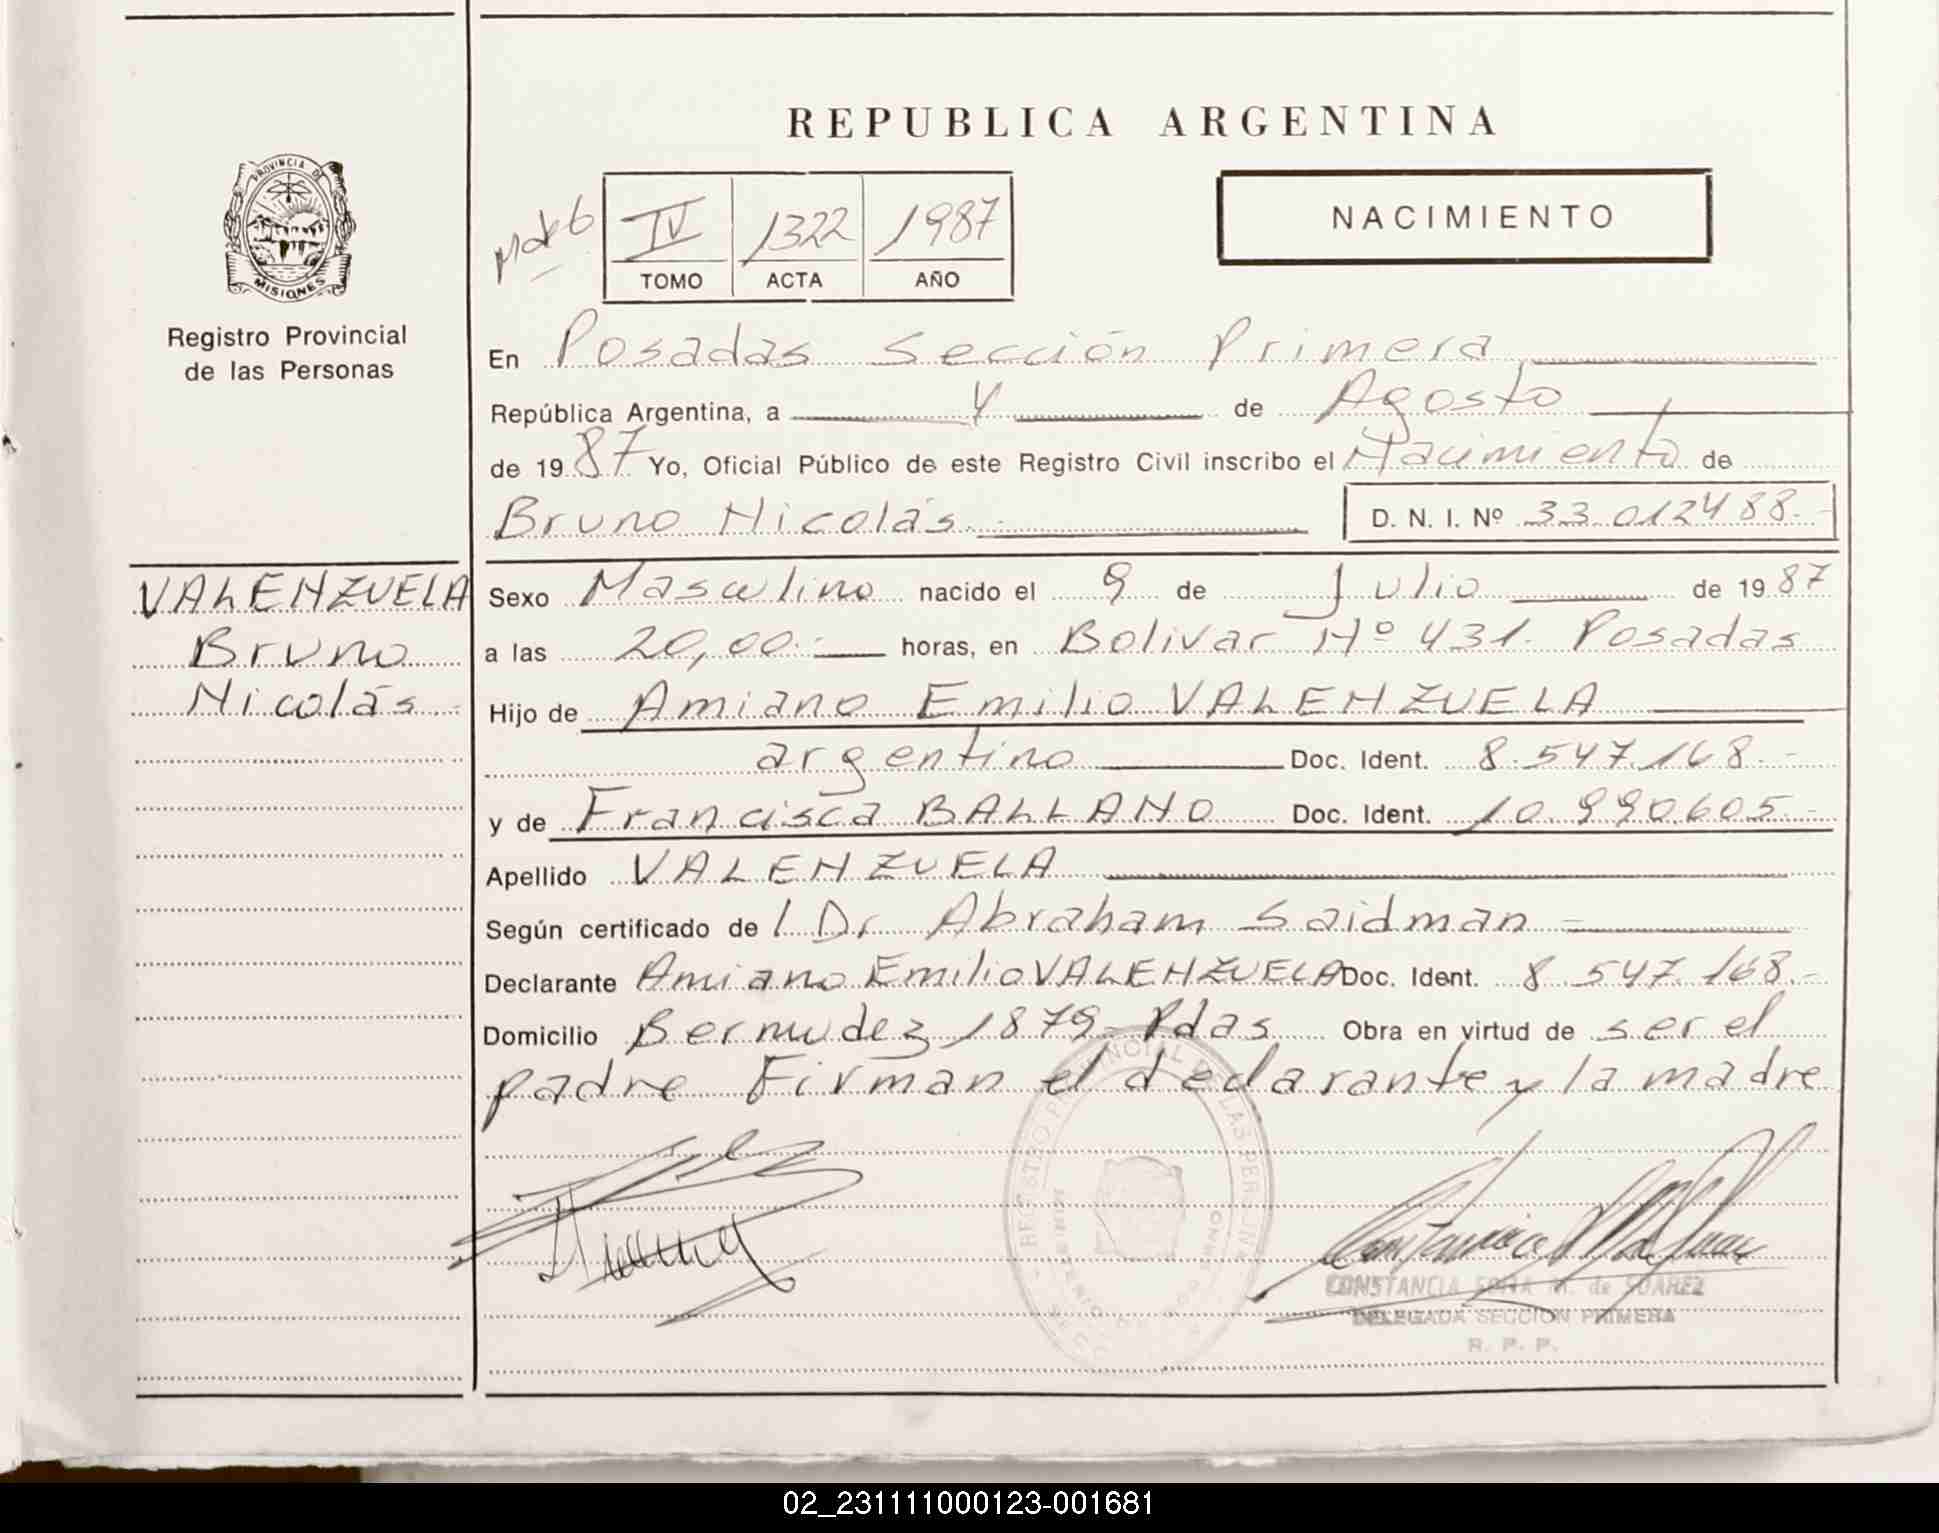 REPUBLICA ARGENTINA
PROVINCIA DE
MISIONES
Registro Provincial
de las Personas
IV 1322 1987
TOMO ACTA AÑO
NACIMIENTO
En Posadas Sección Primera
República Argentina, a 4 de Agosto
de 1987 Yo, Oficial Público de este Registro Civil inscribo el Nacimiento de
Bruno Nicolás. D. N. I. Nº 33.012488.-
VALENZUELA
Bruno
Nicolás.-
Sexo Masculino nacido el 9 de Julio de 1987
a las 20,00.- horas, en Bolivar Nº 431. Posadas
Hijo de Amiano Emilio VALENZUELA
argentino Doc. Ident. 8.547.168.-
y de Francisca BALLANO Doc. Ident. 10.990.605.-
Apellido VALENZUELA
Según certificado de l Dr Abraham Saidman
Declarante Amiano Emilio VALENZUELA Doc. Ident. 8.547.168.-
Domicilio Bermudez 1879- Pdas Obra en virtud de ser el
padre Firman el declarante y la madre
CONSTANCIA SOFIA M. de SUAREZ
DELEGADA SECCION PRIMERA
R. P. P.
02_231111000123-001681